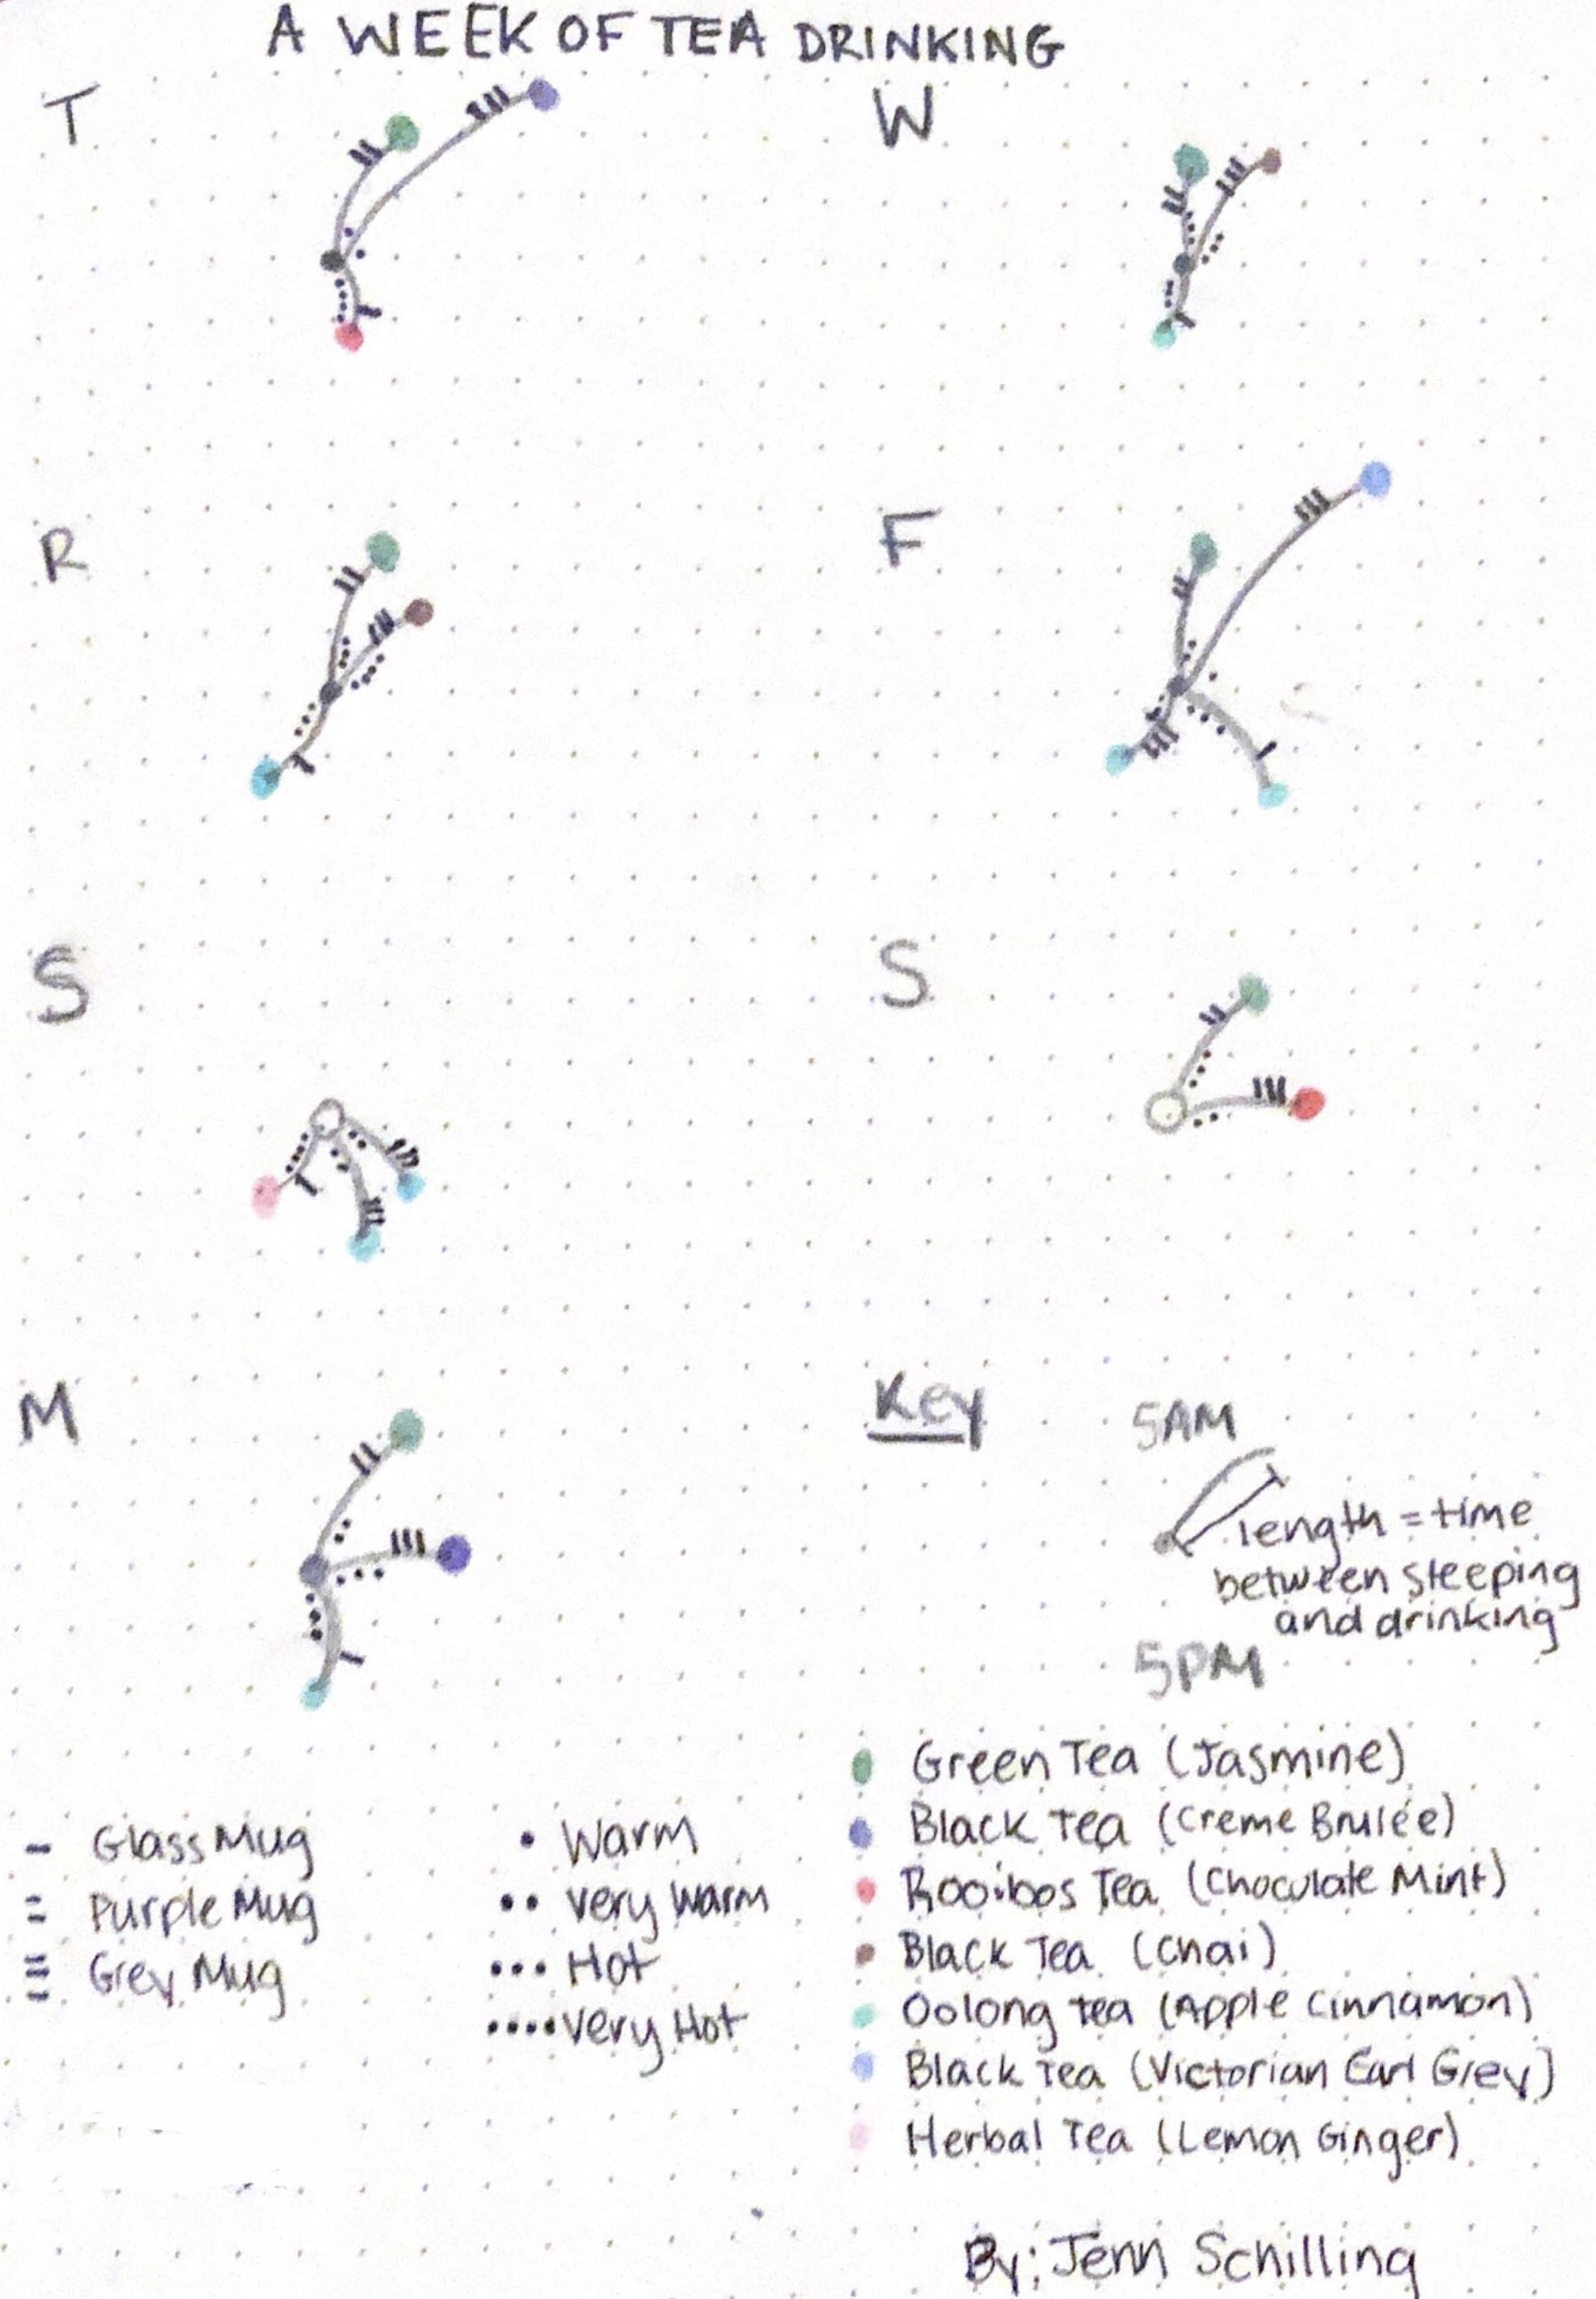 A WEEK OF TEA DRINKING
T
W
R
F
S
S
M
Key
5AM
length = time
between sleeping
and drinking
5PM
Glass Mug
Purple Mug
Grey Mug
Warm
Very Warm
Hot
Very Hot
Green Tea (Jasmine)
Black Tea (Creme Brulée)
Rooibos Tea (Choculate Mint)
Black Tea (Chai)
Oolong tea (Apple Cinnamon)
Black Tea (Victorian Earl Grey)
Herbal Tea (Lemon Ginger)
By: Jenn Schilling